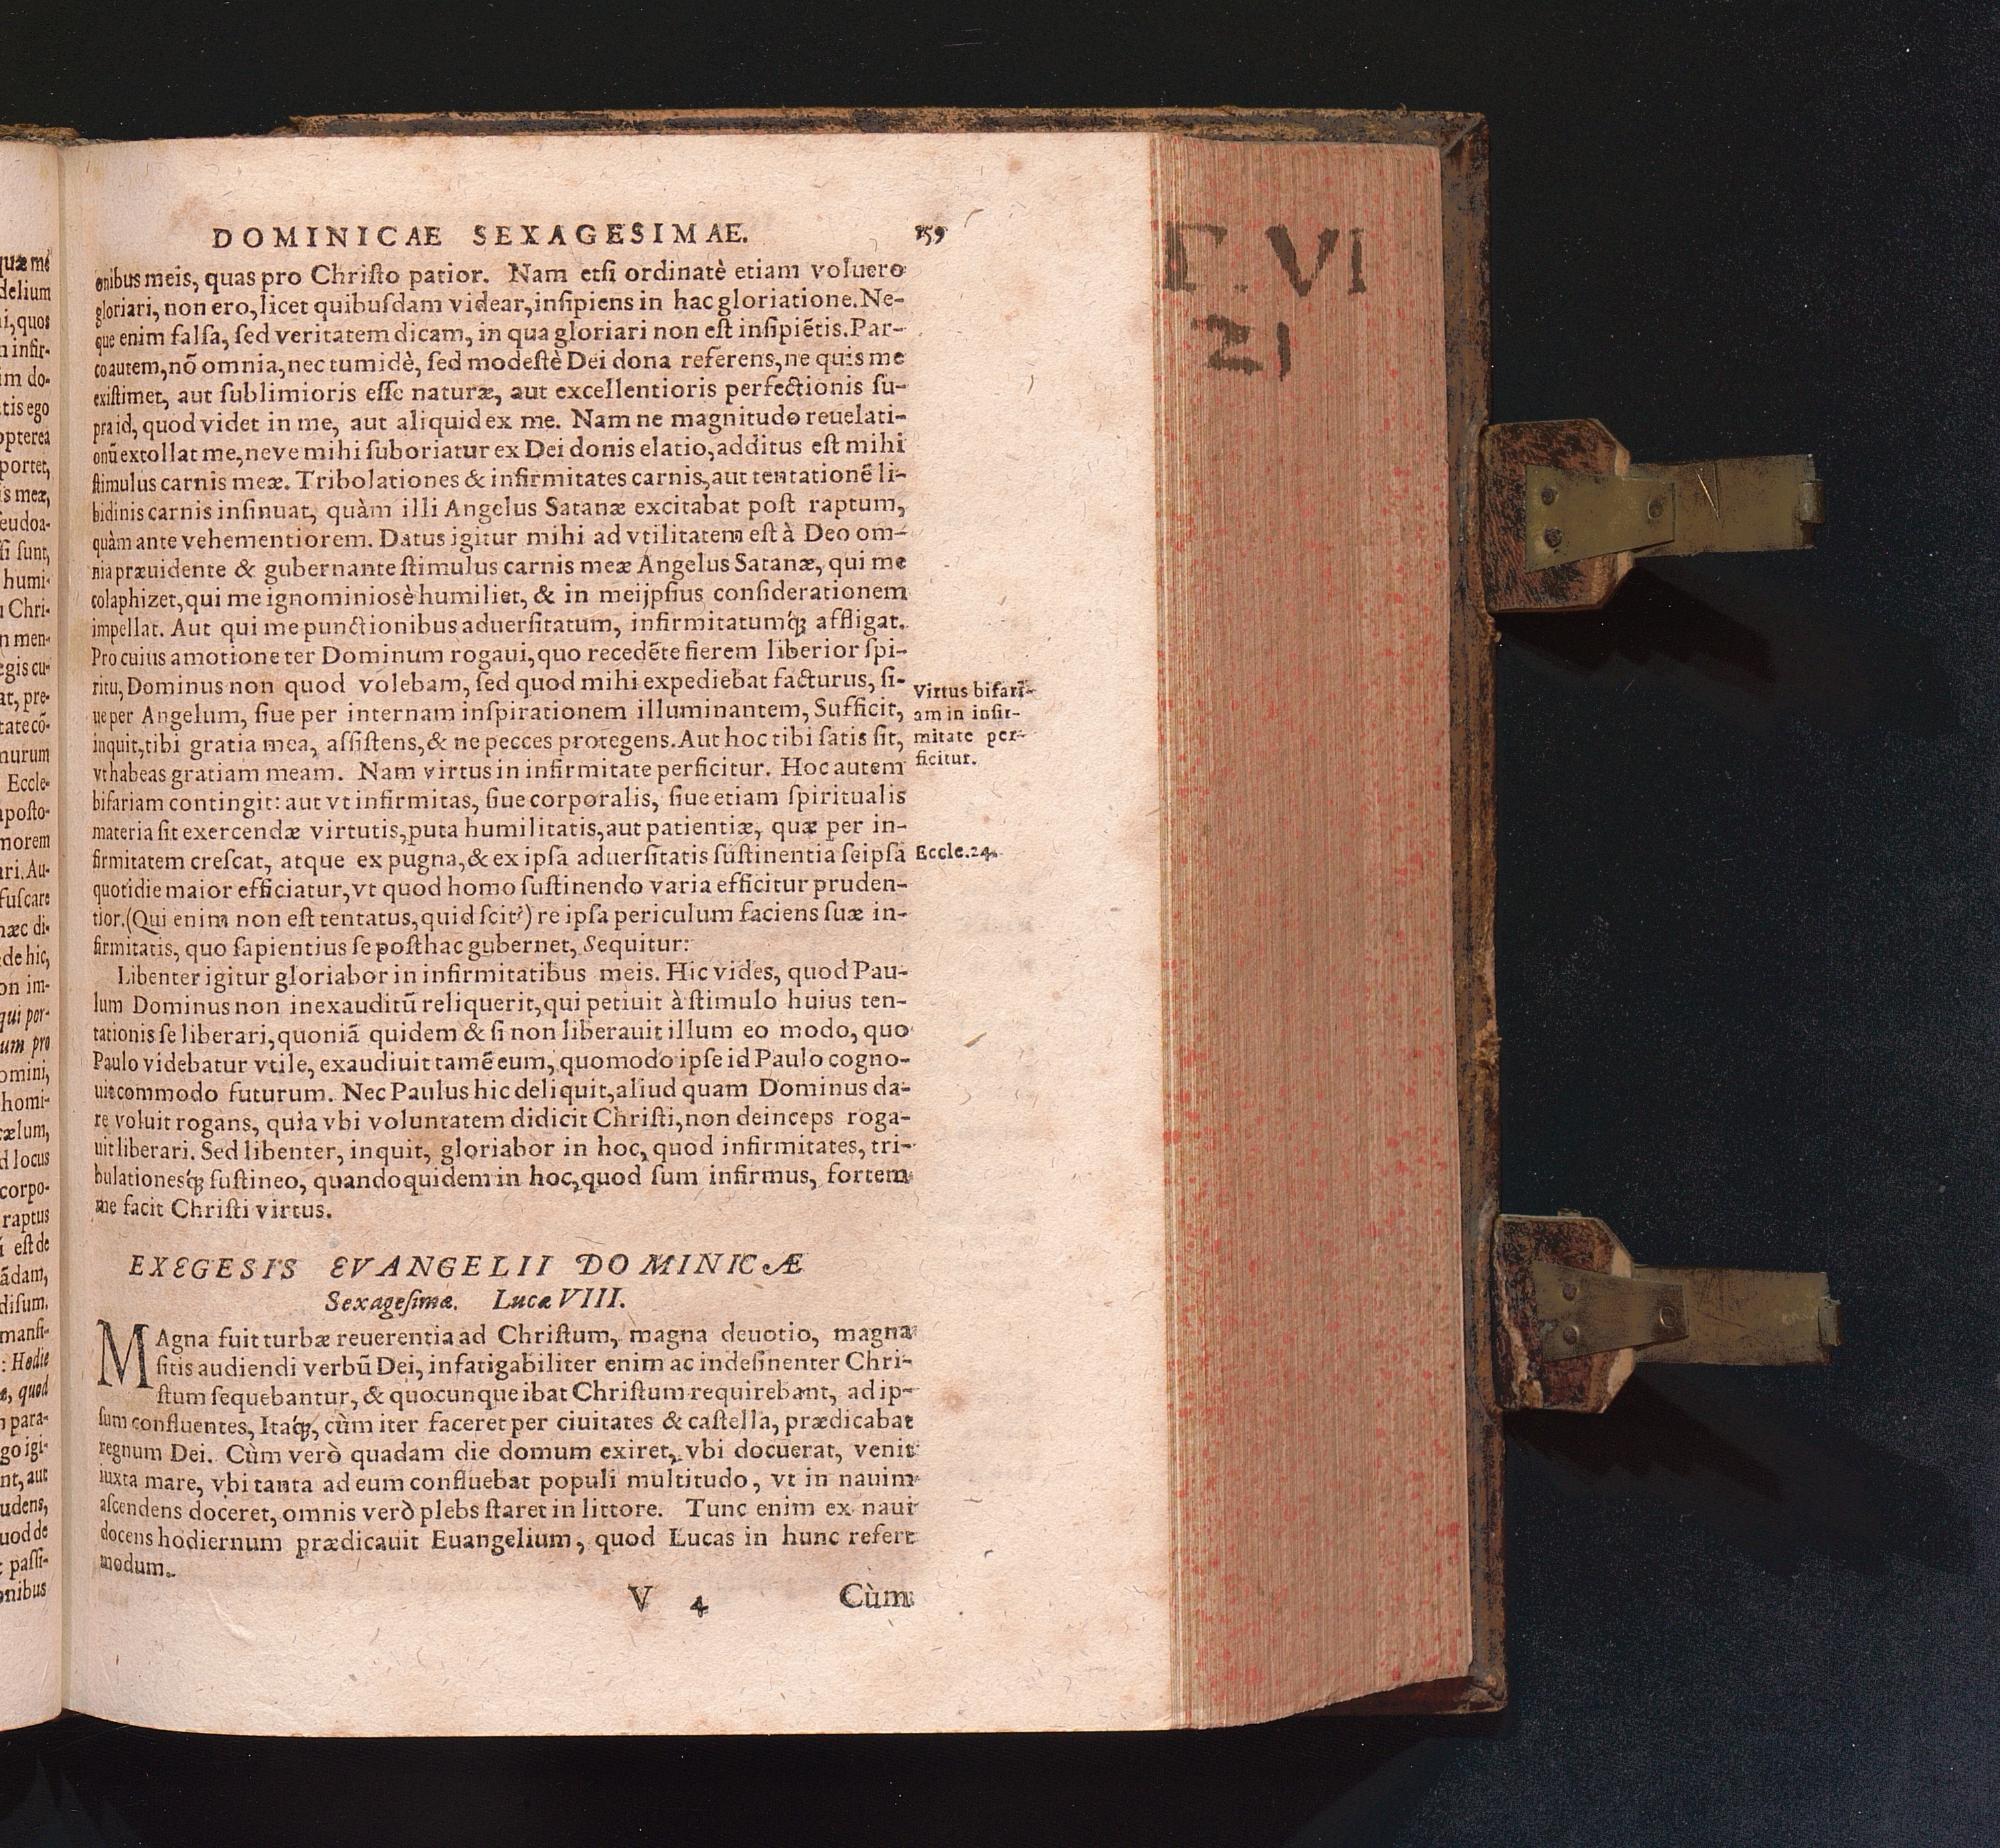 DOMINICAE SEXAGESIMAE. 159
onibus meis, quas pro Chriſto patior. Nam etſi ordinatè etiam voluero
gloriari, non ero, licet quibuſdam videar, inſipiens in hac gloriatione. Ne-
que enim falſa, ſed veritatem dicam, in qua gloriari non eſt inſipiẽtis. Par-
co autem, nõ omnia, nec tumidè, ſed modeſtè Dei dona referens, ne quis me
exiſtimet, aut ſublimioris eſſe naturæ, aut excellentioris perfectionis ſu-
pra id, quod videt in me, aut aliquid ex me. Nam ne magnitudo reuelati-
onũ extollat me, neve mihi ſuboriatur ex Dei donis elatio, additus eſt mihi
ſtimulus carnis meæ. Tribolationes & infirmitates carnis, aut tentationẽ li-
bidinis carnis inſinuat, quàm illi Angelus Satanæ excitabat poſt raptum,
quàm ante vehementiorem. Datus igitur mihi ad vtilitatem eſt à Deo om-
nia præuidente & gubernante ſtimulus carnis meæ Angelus Satanæ, qui me
colaphizet, qui me ignominiosè humiliet, & in meijpſius conſiderationem
impellat. Aut qui me punctionibus aduerſitatum, infirmitatumq́ꝫ affligat.
Pro cuius amotione ter Dominum rogaui, quo recedẽte fierem liberior ſpi-
ritu, Dominus non quod volebam, ſed quod mihi expediebat facturus, ſi-
ue per Angelum, ſiue per internam inſpirationem illuminantem, Sufficit,
inquit, tibi gratia mea, aſſiſtens, & ne pecces protegens. Aut hoc tibi ſatis ſit,
vt habeas gratiam meam. Nam virtus in infirmitate perficitur. Hoc autem
bifariam contingit: aut vt infirmitas, ſiue corporalis, ſiue etiam ſpiritualis
materia ſit exercendæ virtutis, puta humilitatis, aut patientiæ, quæ per in-
firmitatem creſcat, atque ex pugna, & ex ipſa aduerſitatis ſuſtinentia ſeipſa
quotidie maior efficiatur, vt quod homo ſuſtinendo varia efficitur pruden-
tior. (Qui enim non eſt tentatus, quid ſcit?) re ipſa periculum faciens ſuæ in-
firmitatis, quo ſapientius ſe poſthac gubernet, Sequitur:
Libenter igitur gloriabor in infirmitatibus meis. Hic vides, quod Pau-
lum Dominus non inexauditũ reliquerit, qui petiuit à ſtimulo huius ten-
tationis ſe liberari, quoniã quidem & ſi non liberauit illum eo modo, quo
Paulo videbatur vtile, exaudiuit tamẽ eum, quomodo ipſe id Paulo cogno-
uit commodo futurum. Nec Paulus hic deliquit, aliud quam Dominus da-
re voluit rogans, quia vbi voluntatem didicit Chriſti, non deinceps roga-
uit liberari. Sed libenter, inquit, gloriabor in hoc, quod infirmitates, tri-
bulationesq́ꝫ ſuſtineo, quandoquidem in hoc, quod ſum infirmus, fortem
me facit Chriſti virtus.
Virtus bifari-
am in infir-
mitate per-
ficitur.
Eccle.24.
EXEGESIS EVANGELII DOMINICÆ
Sexageſimæ. Lucæ VIII.
MAgna fuit turbæ reuerentia ad Chriſtum, magna deuotio, magna
ſitis audiendi verbũ Dei, infatigabiliter enim ac indeſinenter Chri-
ſtum ſequebantur, & quocunque ibat Chriſtum requirebant, ad ip-
ſum confluentes, Itaq́ꝫ, cùm iter faceret per ciuitates & caſtella, prædicabat
regnum Dei. Cùm verò quadam die domum exiret, vbi docuerat, venit
iuxta mare, vbi tanta ad eum confluebat populi multitudo, vt in nauim
aſcendens doceret, omnis verò plebs ſtaret in littore. Tunc enim ex naui
docens hodiernum prædicauit Euangelium, quod Lucas in hunc refert
modum.
V 4 Cùm
VI
21
quæ me
delium
i, quos
n infir-
im do-
tis ego
opterea
portet,
is meæ,
eudoa-
ſi ſunt,
humi-
Chri-
n men-
egis cu-
at, pre-
tate cõ-
nurum
Eccle-
apoſto-
morem
ari. Au-
fuſcare
hæc di-
de hic,
on im-
qui por-
um pro
omini,
homi-
cælum,
d locus
corpo-
raptus
eſt de
ãdam,
diſum.
manſi-
: Hodie
æ, quod
para-
go igi-
nt, aut
udens,
uod de
paſſi-
onibus